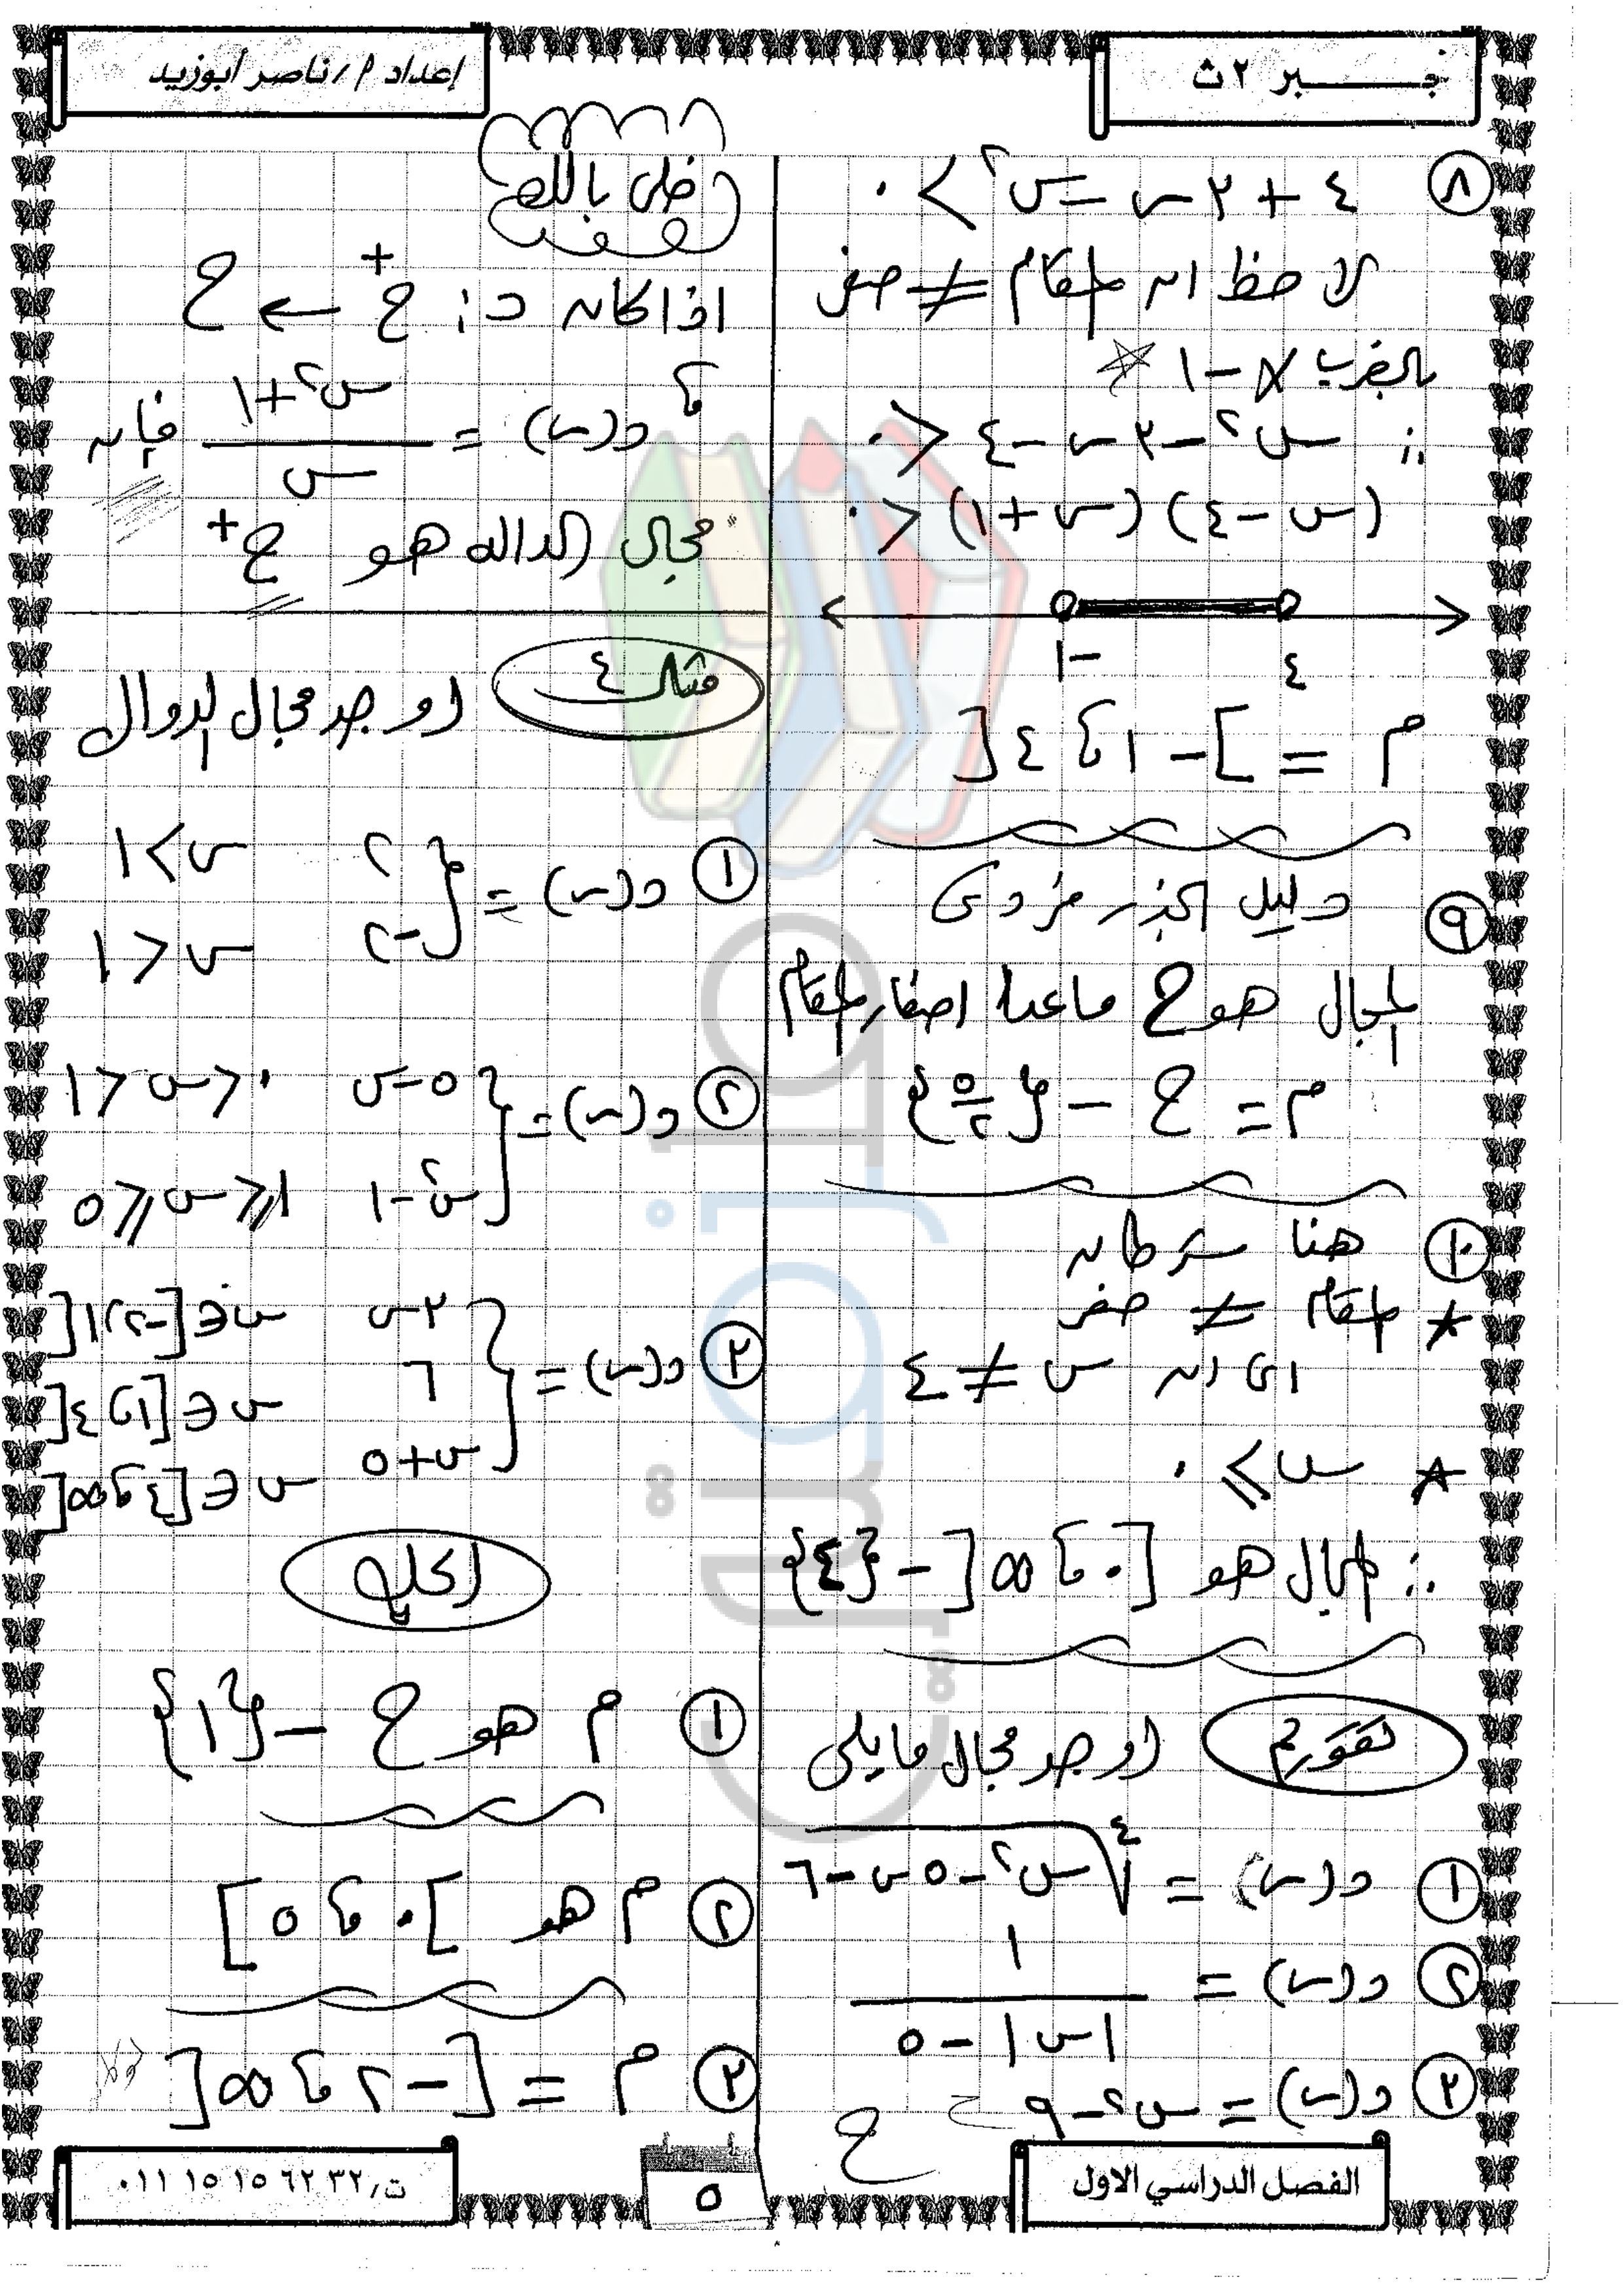 جبر ٢ث
إعداد م/ ناصر أبوزيد
٨ ٤ + ٣س - س٢ > ٠
لاحظ ان المقام ≠ صفر
بالضرب × -١
∴ س٢ - ٣س - ٤ < ٠
(س - ٤) (س + ١) < ٠
-١ ٤
م = ]-١، ٤[
٩ دليل الجذر فردى
المجال هو ح ماعدا اصفار المقام
م = ح - {٥/٢}
١٠ هنا شرطان
* المقام ≠ صفر
اى ان س ≠ ٤
* س ≥ ٠
∴ المجال هو [٠، ∞[ - {٤}
تقويم اوجد مجال مايلى
١ د(س) = ⁴√(س٢ - ٥س - ٦)
٢ د(س) = ١ / (|س| - ٥)
٣ د(س) = س٢ - ٩ ح
خلى بالك
اذا كان د: ح+ ← ح
، د(س) = (س٢ + ١) / س فإن
مجال الداله هو ح+
مثال ٤ اوجد مجال الدوال
١ د(س) = { ٢ س > ١
-٢ س < ١
٢ د(س) = { ٥ - س ٠ < س < ١
س٢ - ١ ١ ≤ س ≤ ٥
٣ د(س) = { ٣ - س س ∈ [-٢، ١[
٦ س ∈ [١، ٤[
س + ٥ س ∈ [٤، ∞[
الحل
١ م هو ح - {١}
٢ م هو ]٠، ٥]
٣ م = [-٢، ∞[
الفصل الدراسي الاول
٥
ت/ ٣٢ ٦٢ ١٥ ١٥ ٠١١